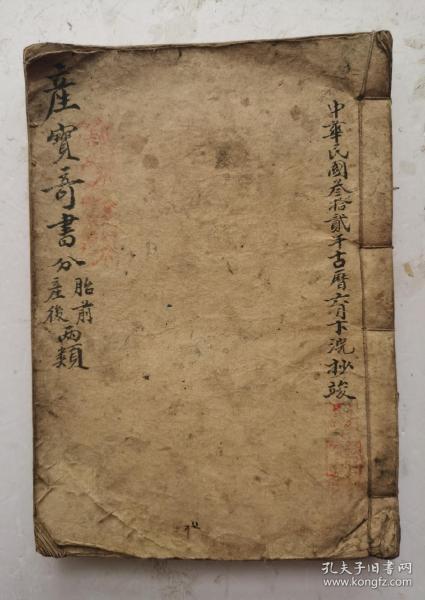 中華民國叁拾貳年古曆六月下浣抄竣
產寶奇書分胎前產後兩類
孔夫子旧书网
www.kongfz.com